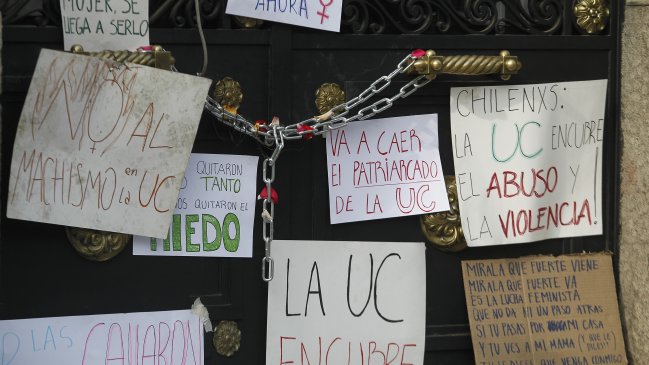 MUJER, SE
LLEGA A SERLO
AHORA
NO AL
MACHISMO en
LA UC
QUITARON
TANTO
QUITARON EL
MIEDO
VA A CAER
El PATRIARCADO
DE LA UC
CHILENXS:
LA UC ENCUBRE
EL ABUSO Y
LA VIOLENCIA!
LA UC
ENCUBRE
MIRALA QUE FUERTE VIENE
MIRALA QUE FUERTE VA
ES LA LUCHA FEMINISTA
QUE NO DA NI UN PASO ATRAS
SI TU PASAS POR MI CASA
Y TU VES A MI MAMA
QUE VENGA CONMIGO
LAS CALLARON